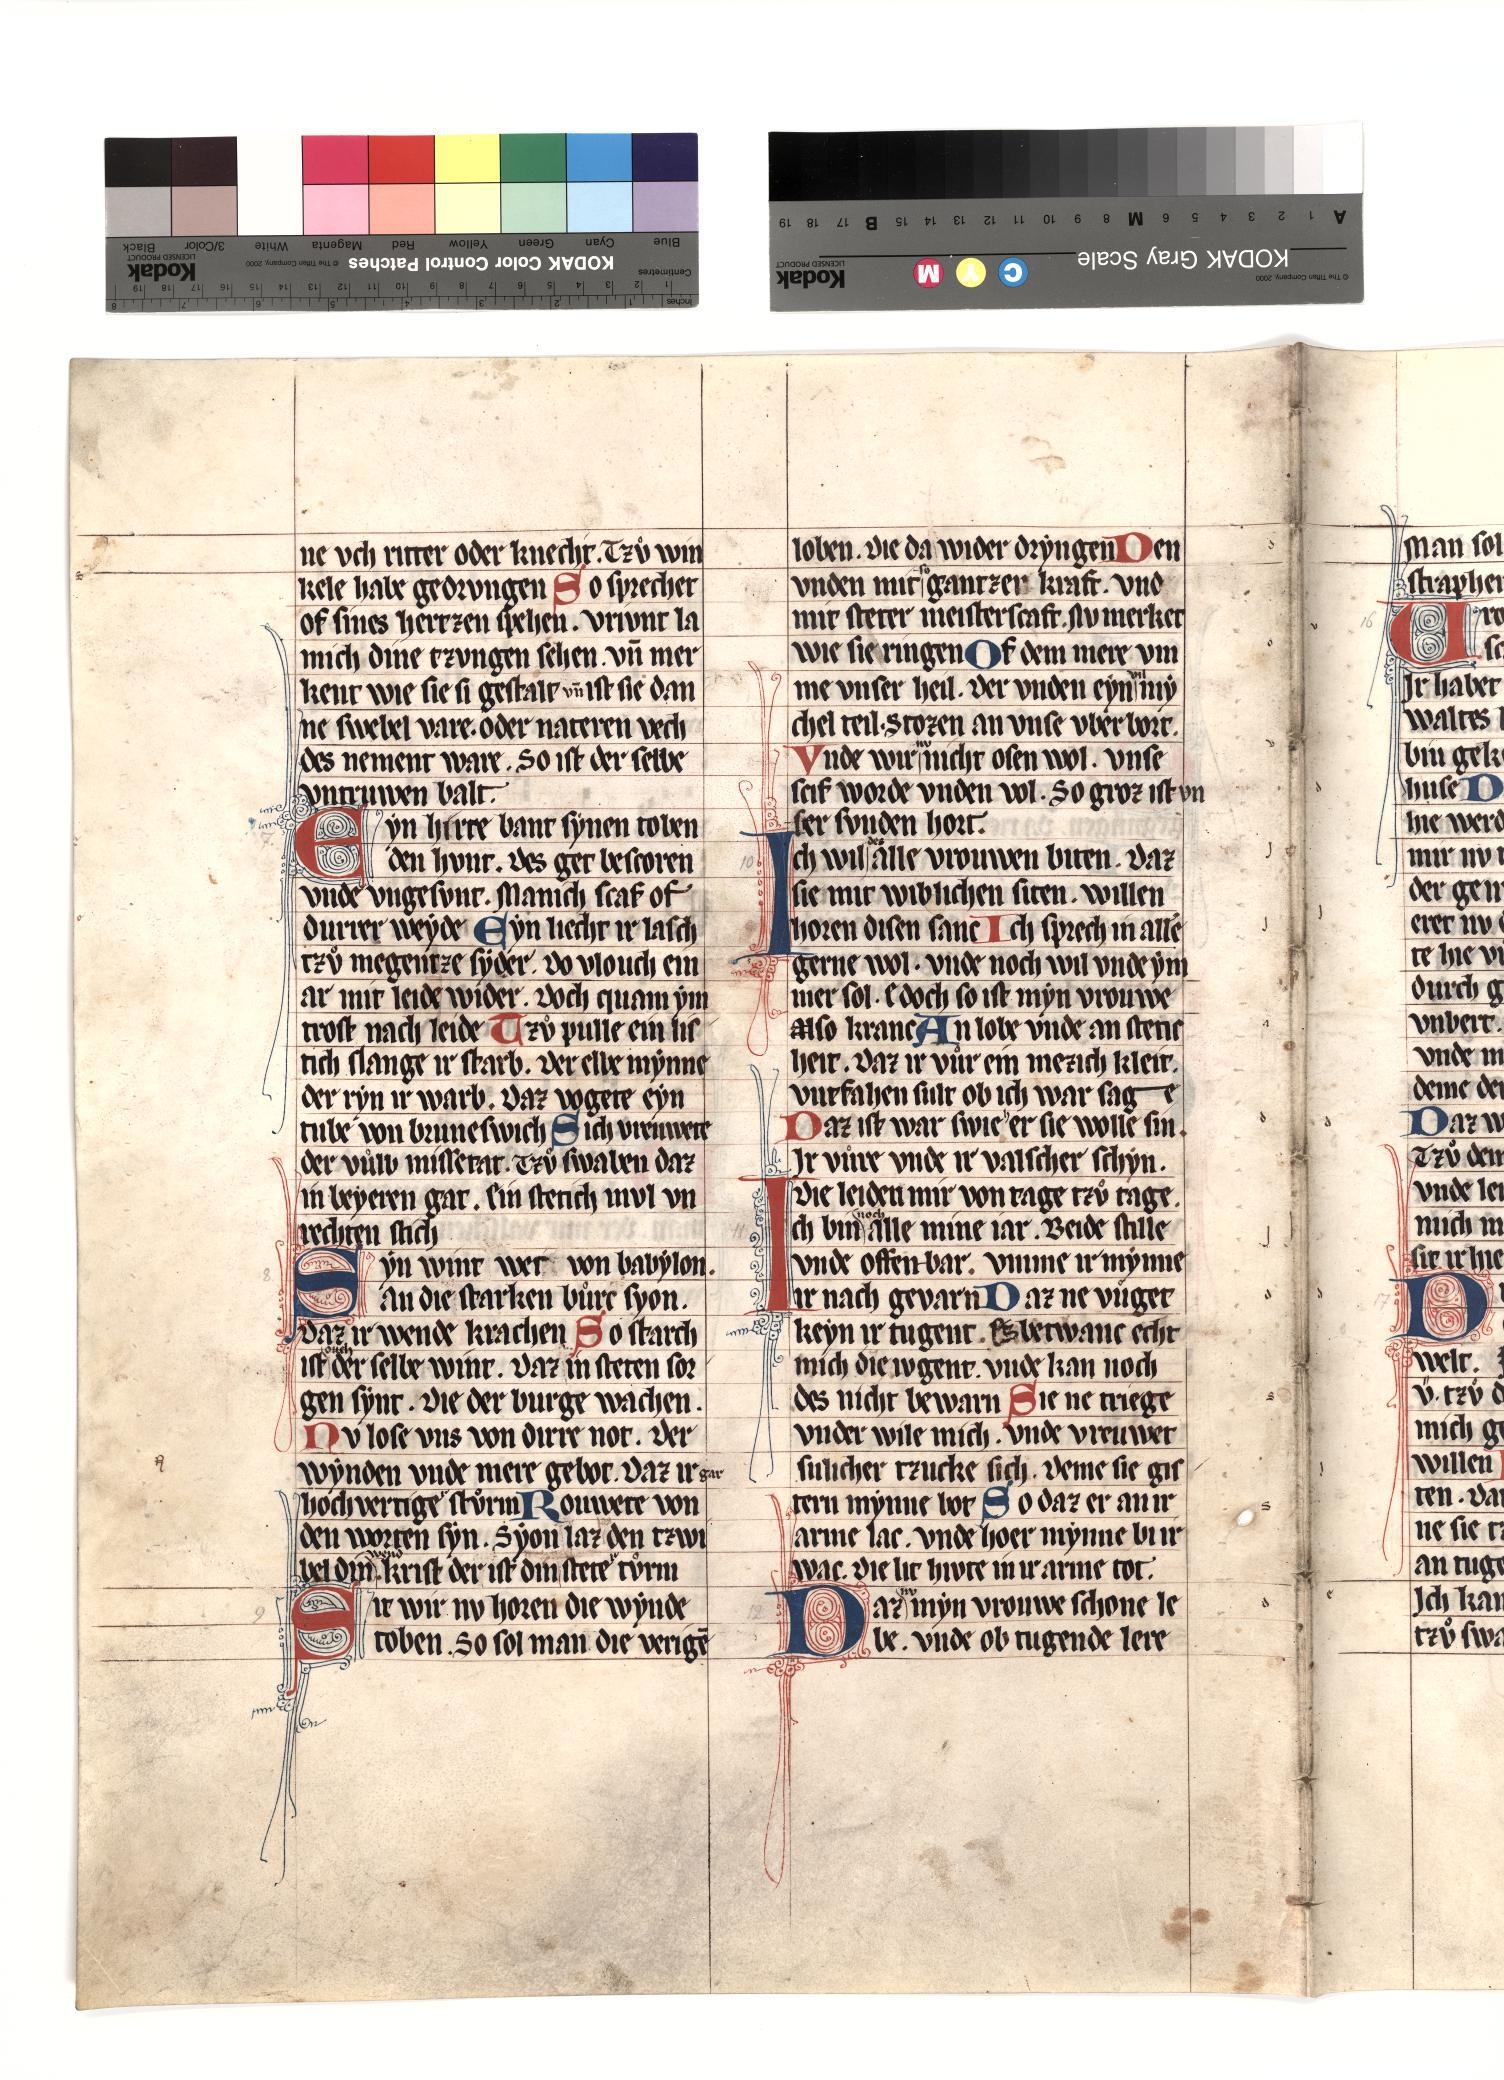 ne vch ritter oder knecht. Tzvͦ win
kele habe gedrungen So sprechet
of sines hertzen spehen. vrivnt la
mich dine tzvngen sehen. vñ mer
kent wie sie si gestalt vñ ist sie dan
ne swebel vare. oder nateren vech
des nement ware. So ist der selbe
vntruwen balt.
Eyn hirte bant synen toben
den hvnt. Des get bescoren
vnde vngesunt. Manich scaf of
durrer weyde Eyn liecht ir lasch
tzvͦ megentze syder. Do vlouch ein
ar mit leide wider. Doch quam ym
trost nach leide Tzvͦ pulle ein lis
tich slange ir starb. Der elbe mynne
der ryn ir warb. Daz vogete eyn
tube von bruneswich Sich vreuwete
der vuͦlv missetat. Tzvͦ swaben daz
in beyeren gat. Sin stetich mvl vn
rechten stich
Syn wint wet von babylon.
An die starken buͦrc syon.
Daz ir wende krachen So starch
ist ouch der selbe wint. Daz in steten sor
gen synt. Die der burge wachen.
Nv lose vns von dirre not. Der
wynden vnde mere gebot. Daz ir gar
hochvertige stuͦrm Rouwete von
den worten syn. Syon laz den tzwi
bel din wend krist der ist din stete tuͦrm
Sit wir nv horen die wynde
toben. So sol man die verigē
loben. Die da wider dryngen Den
vnden mit so gantzer kraft. vnd
mit steter meisterscaft. Nv merket
wie sie ringen Of dem mere vm
me vnser heil. Der vnden eyn vil my
chel teil. Stozen an vnse vber bort.
Vnde wir nv nicht osen wol. vnse
scif worde vnden vol. So groz ist vn
ser svnden hort.
Ich wil des alle vrouwen biten. Daz
sie mit wiblichen siten. willen
horen disen sanc Ich sprech in alle
gerne wol. vnde noch wil vnde ym
mer sol. Edoch so ist myn vrouwe
Also kranc An lobe vnde an stetic
heit. Daz ir vuͦr ein mezich kleit.
vurfahen sult ob ich war sage
Daz ist war swie er sie wolle sin.
Ir vuͦre vnde ir valscher schyn.
Die leiden mir von tage tzvͦ tage.
Ich bin noch alle mine iar. Beide stille
vnde offenbar. vmme ir mynne
ir nach gevarn Daz ne vuͦget
keyn ir tugent. Ez betwanc echt
mich die ivgent. vnde kan noch
des nicht bewarn Sie ne triege
vnder wile mich. vnde vreuwet
sulicher tzucke sich. Deme sie gis
tern mynne bot So daz er an ir
arme lac. vnde hoer mynne bi ir
wac. Die lit hivte in ir arme tot.
Daz nv myn vrouwe schone le
be. vnde ob tugende lere
Man sol
straphen
Jr habet
waltes
bin gek
huse D
hie werd
mir nv
der gen
eret nv
te hie
durch g
vnbert.
vnde m
deme der
Daz w
Tzvͦ dem
vnde lei
mich m
sie ir hie
welt.
mich ge
willen
ten. Da
ne sie tz
an tuge
Ich kan
tzvͦ swa
8
9
10
12
16
17
KODAK Color Control Patches
© The Tiffen Company, 2000
Kodak
LICENSED PRODUCT
Centimetres
Inches
Blue Cyan Green Yellow Red Magenta White 3/Color Black
KODAK Gray Scale
C Y M
Kodak
LICENSED PRODUCT
© The Tiffen Company, 2000
A 1 2 3 4 5 6 M 8 9 10 11 12 13 14 15 B 17 18 19